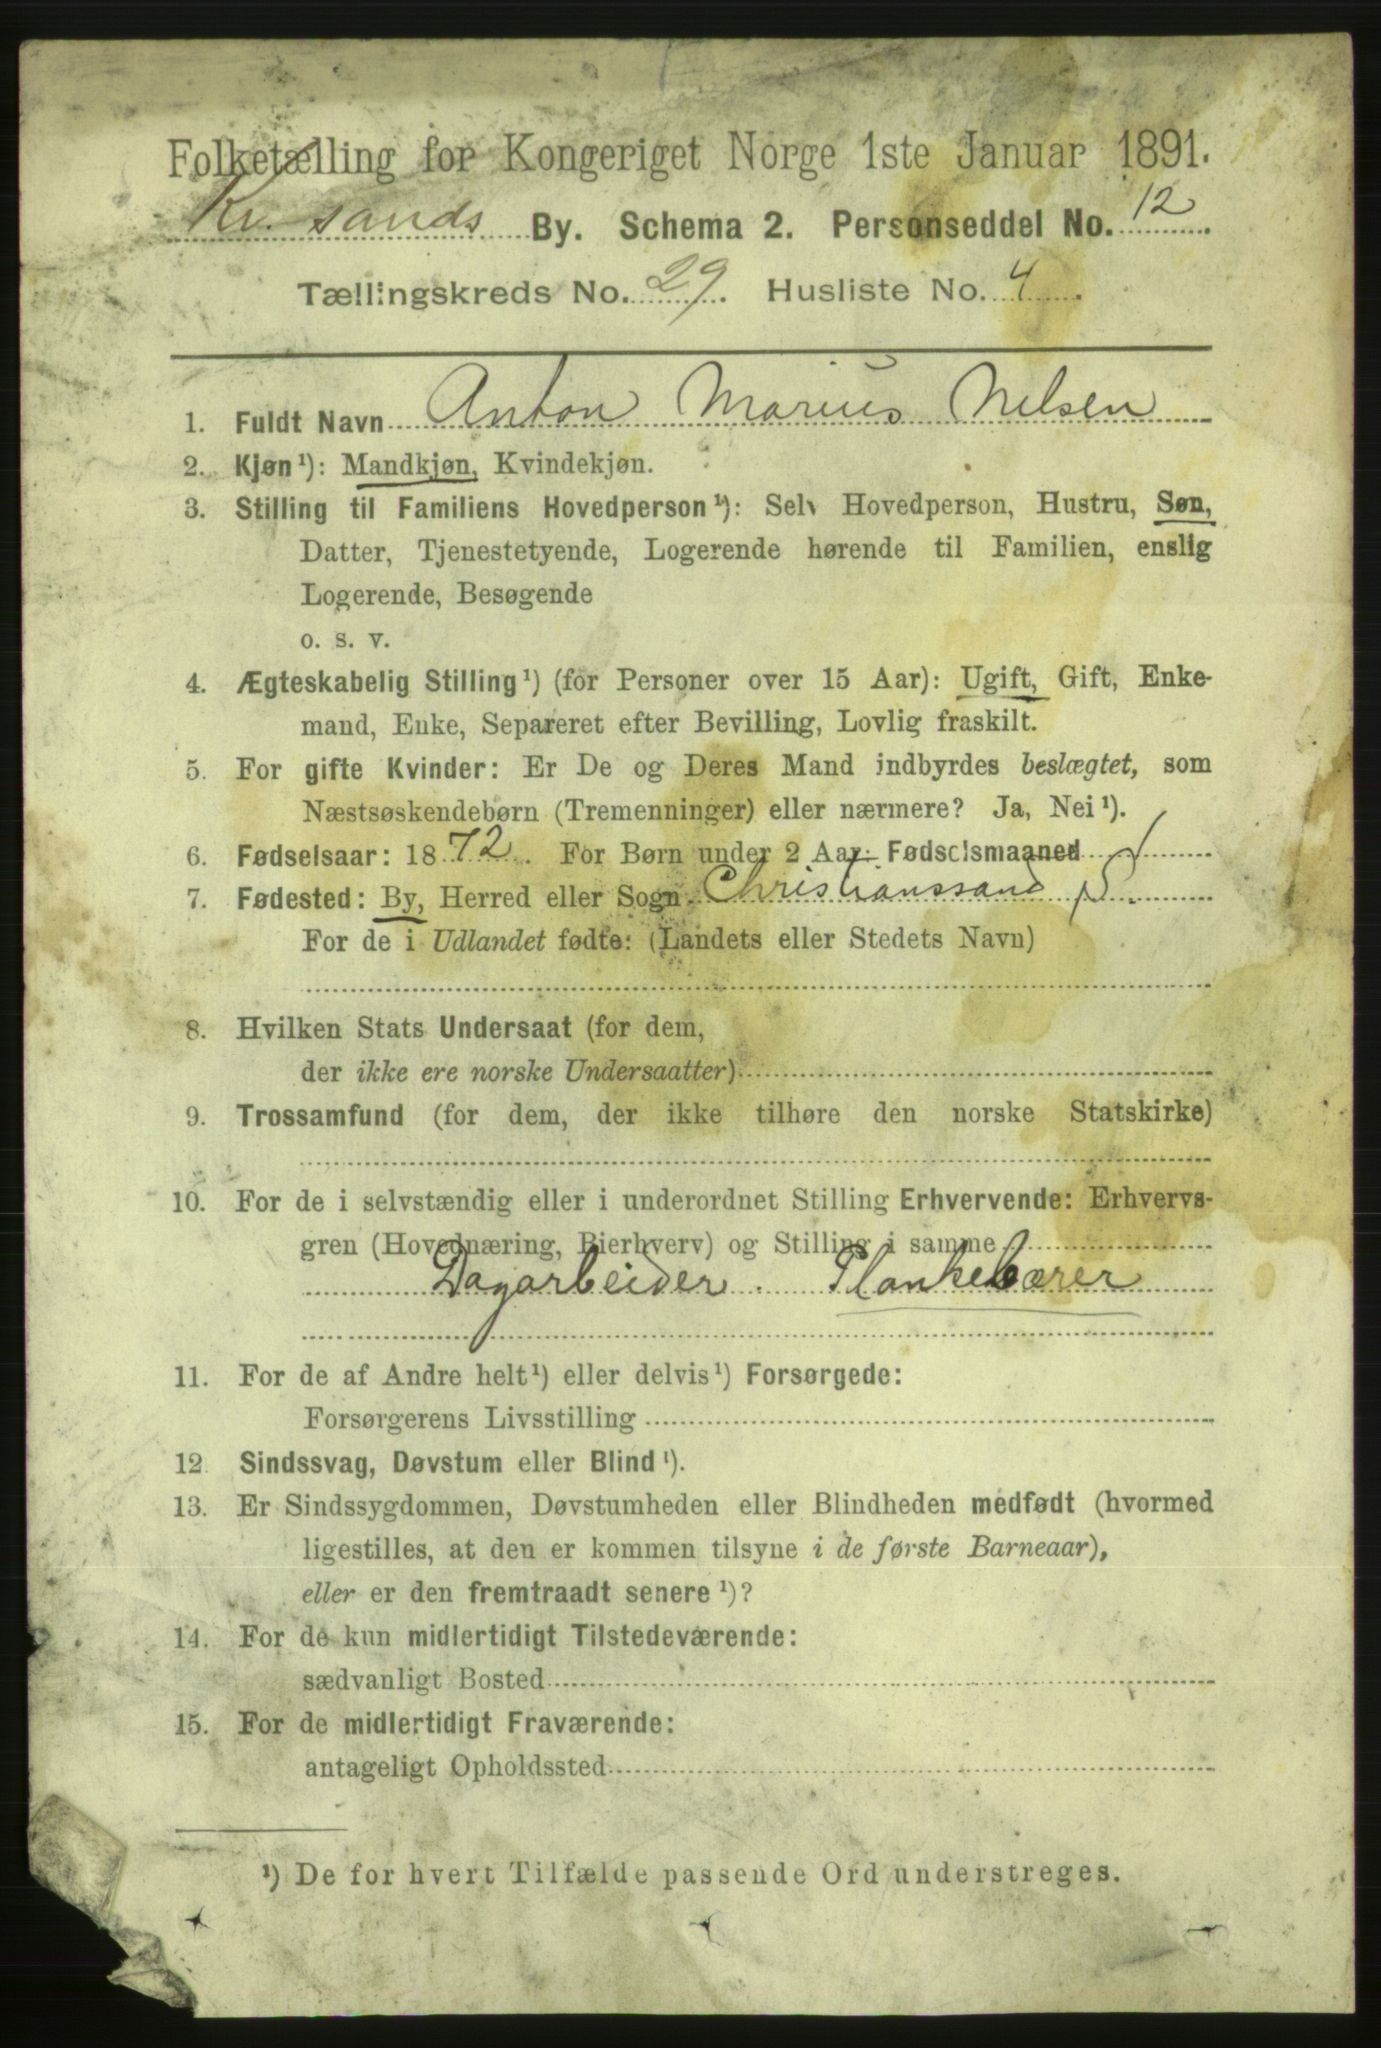 Folketælling for Kongeriget Norge 1ste Januar 1891.
Kr. sands By. Schema 2. Personseddel No. 12
Tællingskreds No. 29. Husliste No. 4.
1. Fuldt Navn Anton Marius Nilsen
2. Kjøn¹): Mandkjøn, Kvindekjøn.
3. Stilling til Familiens Hovedperson¹): Selv Hovedperson, Hustru, Søn,
Datter, Tjenestetyende, Logerende hørende til Familien, enslig
Logerende, Besøgende
o. s. v.
4. Ægteskabelig Stilling¹) (for Personer over 15 Aar): Ugift, Gift, Enke-
mand, Enke, Separeret efter Bevilling, Lovlig fraskilt.
5. For gifte Kvinder: Er De og Deres Mand indbyrdes beslægtet, som
Næstsøskendebørn (Tremenninger) eller nærmere? Ja, Nei¹).
6. Fødselsaar: 1872. For Børn under 2 Aar: Fødselsmaaned /
7. Fødested: By, Herred eller Sogn Christianssand S.
For de i Udlandet fødte: (Landets eller Stedets Navn)
8. Hvilken Stats Undersaat (for dem,
der ikke ere norske Undersaatter)
9. Trossamfund (for dem, der ikke tilhøre den norske Statskirke)
10. For de i selvstændig eller i underordnet Stilling Erhvervende: Erhvervs-
gren (Hovednæring, Bierhverv) og Stilling i samme
Dagarbeider. Plankebærer
11. For de af Andre helt¹) eller delvis¹) Forsørgede:
Forsørgerens Livsstilling
12. Sindssvag, Døvstum eller Blind¹).
13. Er Sindssygdommen, Døvstumheden eller Blindheden medfødt (hvormed
ligestilles, at den er kommen tilsyne i de første Barneaar),
eller er den fremtraadt senere¹)?
14. For de kun midlertidigt Tilstedeværende:
sædvanligt Bosted
15. For de midlertidigt Fraværende:
antageligt Opholdssted
¹) De for hvert Tilfælde passende Ord understreges.